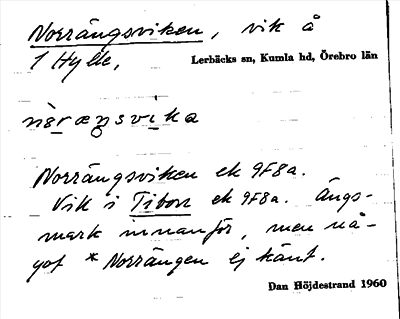 Norrängsviken, vik å
1 Hylte, Lerbäcks sn, Kumla hd, Örebro län
Norrängsviken ek 9F8a.
Vik i Tibon ek 9F8a. Ängs-
mark innanför, men nå-
got * Norrängen ej känt.
Dan Höjdestrand 1960